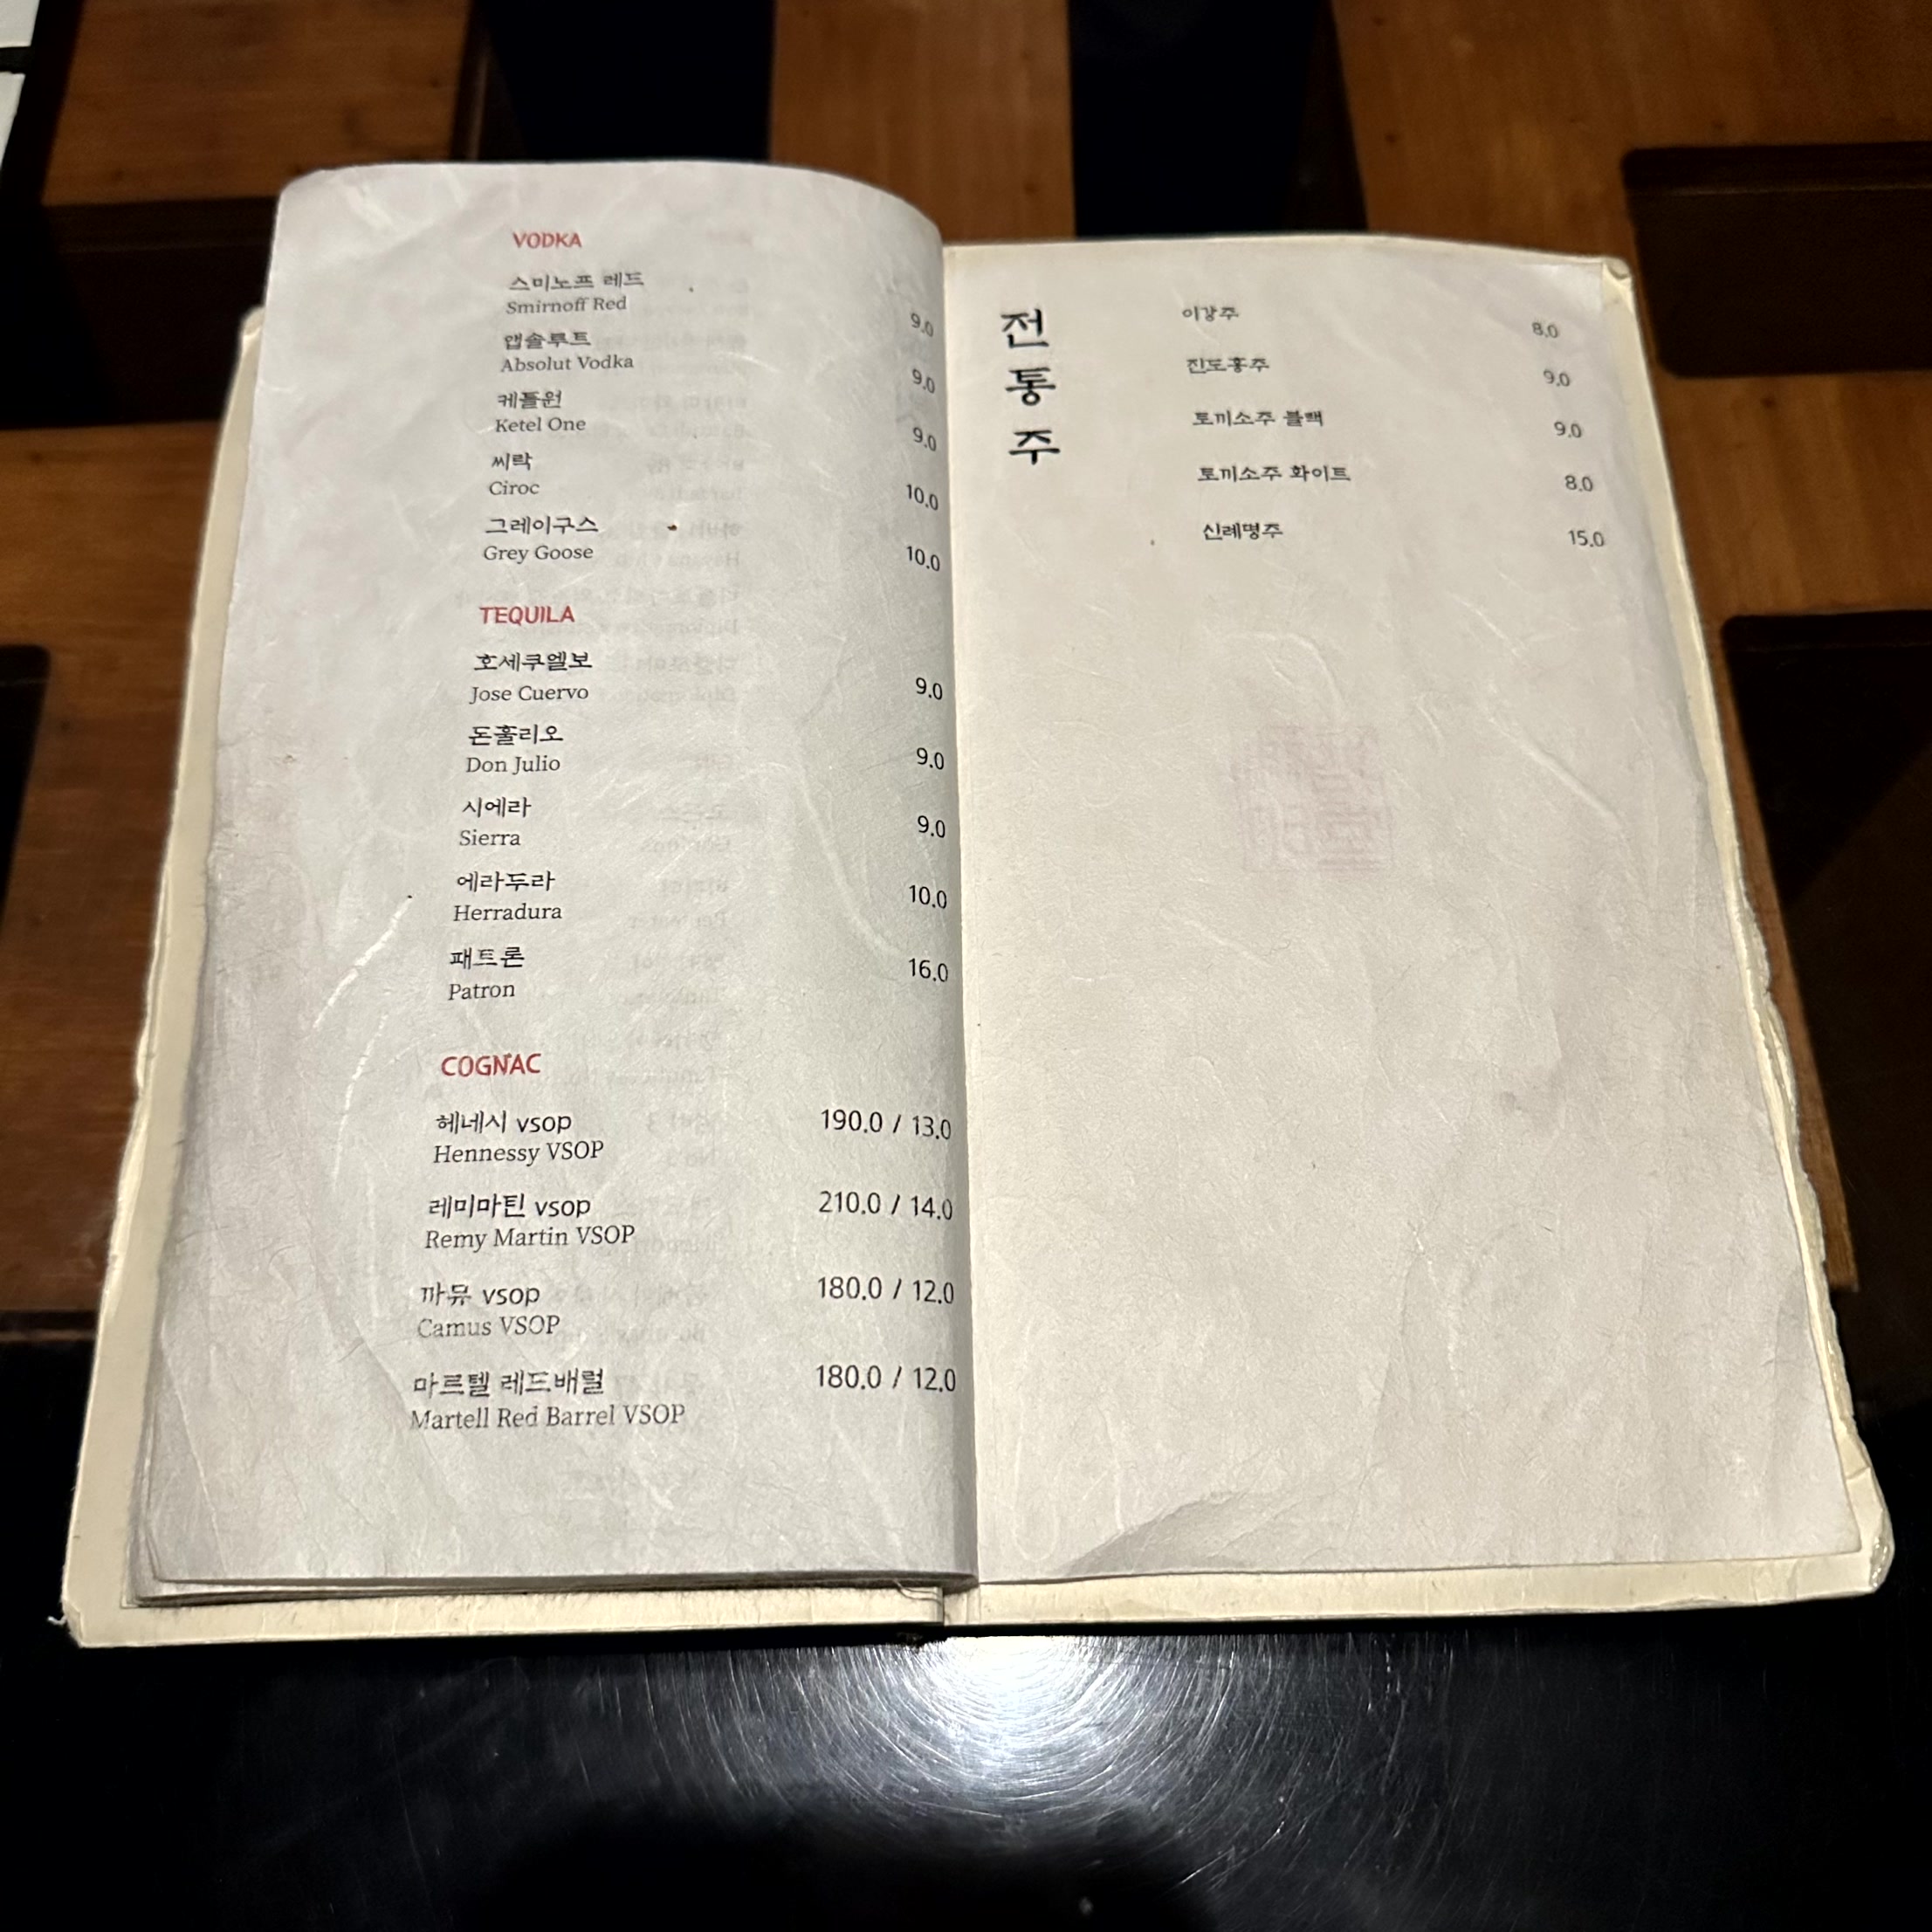 VODKA
스미노프 레드
Smirnoff Red
9.0
앱솔루트
Absolut Vodka
9.0
케틀원
Ketel One
9.0
씨락
Ciroc
10.0
그레이구스
Grey Goose
10.0
TEQUILA
호세쿠엘보
Jose Cuervo
9.0
돈훌리오
Don Julio
9.0
시에라
Sierra
9.0
에라두라
Herradura
10.0
패트론
Patron
16.0
COGNAC
헤네시 vsop
190.0 / 13.0
Hennessy VSOP
레미마틴 vsop
210.0 / 14.0
Remy Martin VSOP
까뮤 vsop
180.0 / 12.0
Camus VSOP
마르텔 레드배럴
180.0 / 12.0
Martell Red Barrel VSOP
전통주
이강주 8.0
진도홍주 9.0
토끼소주 블랙 9.0
토끼소주 화이트 8.0
신례명주 15.0